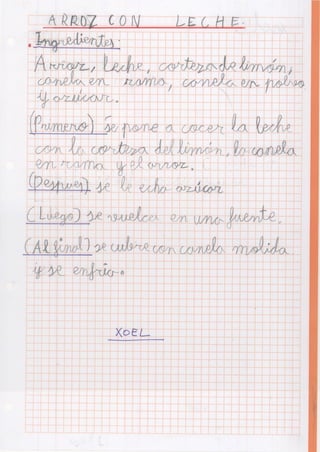 ARROZ CON LECHE.
Ingredientes:
Arroz, Leche, corteza de limón,
canela en rama, canela en polvo
y azúcar.
(Primero) se pone a cocer la leche
con la corteza del limón, la canela
en rama y el arroz.
(Despues) se le echa azúcar
(Luego) se vuelca en una fuente.
(Al final) se cubre con canela molida
y se enfría.
XOEL